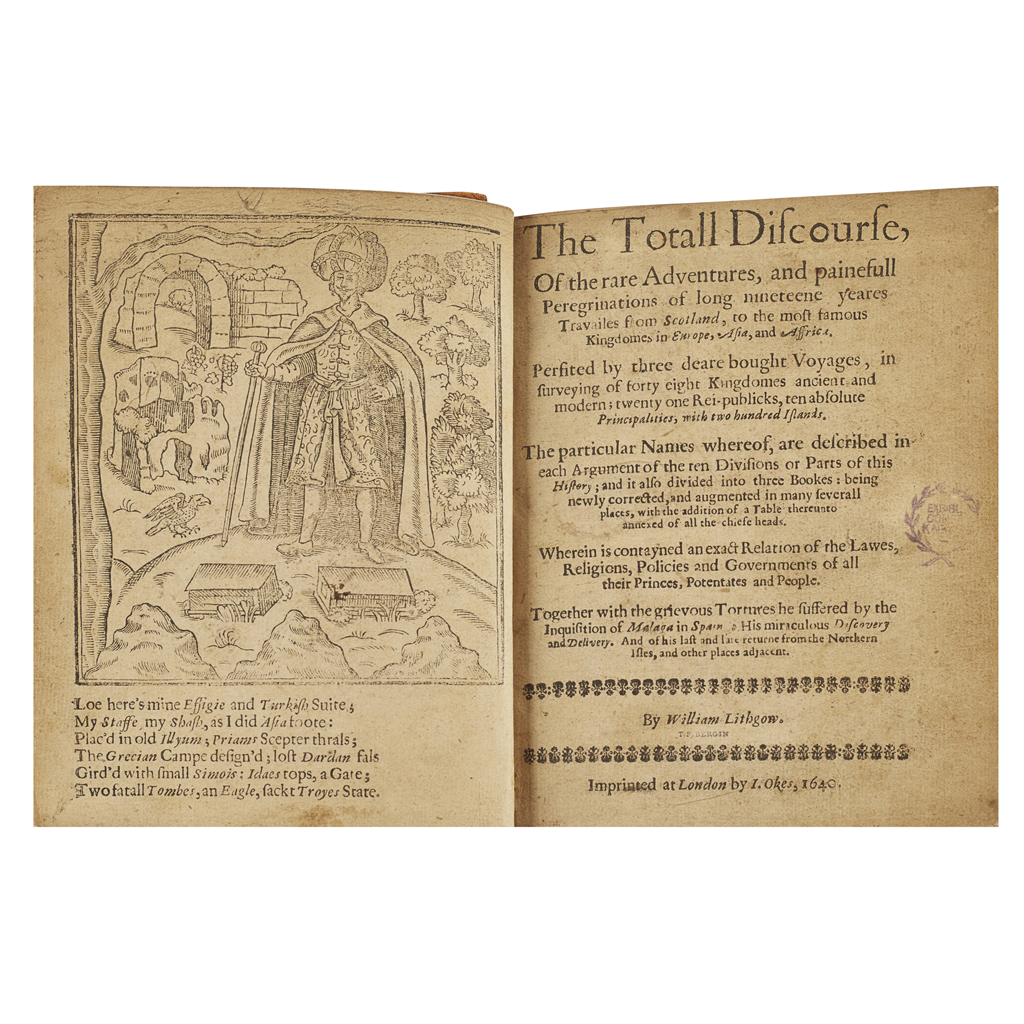 Loe here's mine Effigie and Turkiſh Suite;
My Staffe, my Shaſh, as I did Aſia foote:
Plac'd in old Illyum; Priams Scepter thrals;
The Grecian Campe deſign'd; loſt Dardan fals
Gird'd with ſmall Simois: Idaes tops, a Gate;
Two fatall Tombes, an Eagle, ſackt Troyes State.
The Totall Diſcourſe,
Of the rare Adventures, and painefull
Peregrinations of long nineteene yeares
Travailes from Scotland, to the moſt famous
Kingdomes in Europe, Aſia, and Affrica.
Perfited by three deare bought Voyages, in
ſurveying of forty eight Kingdomes ancient and
modern; twenty one Rei-publicks, ten abſolute
Principalities, with two hundred Iſlands.
The particular Names whereof, are deſcribed in
each Argument of the ten Diviſions or Parts of this
Hiſtory; and it alſo divided into three Bookes: being
newly corrected, and augmented in many ſeverall
places, with the addition of a Table thereunto
annexed of all the chiefe heads.
Wherein is contayned an exact Relation of the Lawes,
Religions, Policies and Governments of all
their Princes, Potentates and People.
Together with the grievous Tortures he ſuffered by the
Inquiſition of Malaga in Spain, His miraculous Diſcovery
and Delivery. And of his laſt and late returne from the Northern
Iſles, and other places adjacent.
By William Lithgow.
T. F. BERGIN
Imprinted at London by I. Okes, 1640.